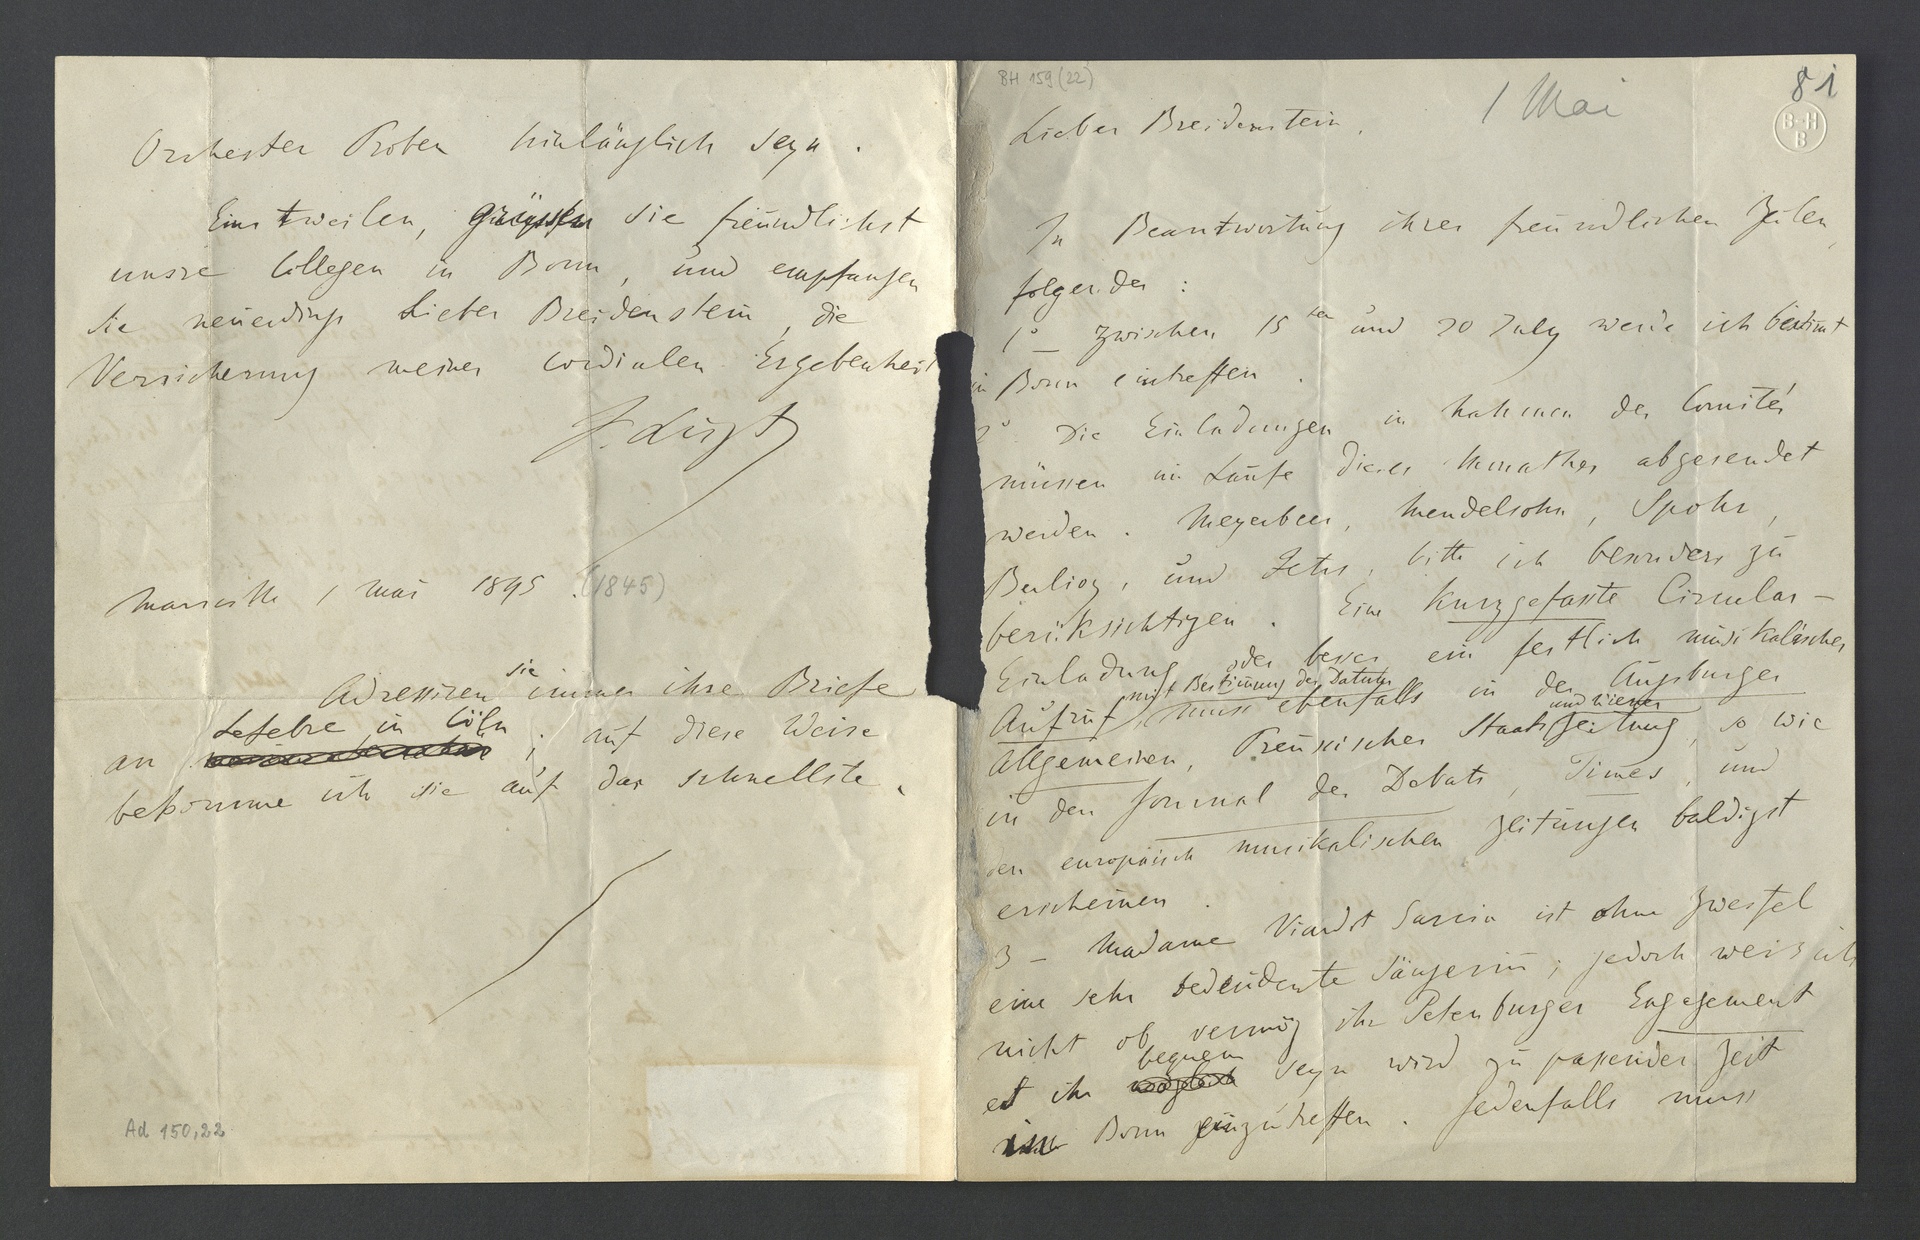 BH 159 (22)
1 Mai
81
B-H
B
Lieber Breidenstein,
In Beantwortung ihrer freundlichen Zeilen,
folgendes :
1° – zwischen 15ten und 20 July werde ich bestimt
in Bonn eintreffen .
2° Die Einladungen in Nahmen des Comités
müssen im Laufe dieses Monathes abgesendet
werden . Meyerbeer, Mendelsohn, Spohr,
Berlioz, und Fetis, bitte ich besonders zu
berüksichtigen . Eine kurzgefasste Circular–
Einladung oder besser ein festlich musikalischer
Aufruf mit Bestimung des Datums muss ebenfalls in der Augsburger
allgemeinen, Preusischer Staats und Wiener Zeitung, so wie
in den Journal des Debats, Times, und
den europäisch musikalischen Zeitungen baldigst
erscheinen .
3 – Madame Viardot Garcia ist ohne Zweifel
eine sehr bedeudente Sängerin ; jedoch weis ich
nicht ob vermög ihr Petersburger Engagement
es ihr möglich bequem seyn wird zu passender Zeit
in Bonn einzutreffen . Jedenfalls muss
Orchester Proben hinlänglich seyn .
Einstweilen, grüssen Sie freundlichst
unsre Collegen in Bonn, und empfangen
Sie neuerdings Lieber Breidenstein, die
Versicherung meiner cordialen Ergebenheit
F. Liszt
Marseille 1 Mai 1845 . (1845)
Adressiren sie immer ihre Briefe
an Lefebre in Cöln ; auf diese Weise
bekomme ich sie auf das schnellste .
Ad 150,22